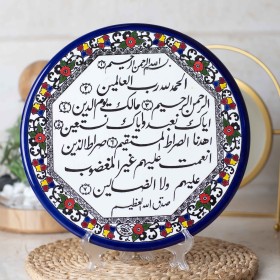 بسم الله الرحمن الرحيم ①
الحمد لله رب العالمين ②
الرحمن الرحيم ③ مالك يوم الدين ④
اياك نعبد واياك نستعين ⑤
اهدنا الصراط المستقيم ⑥ صراط الذين
انعمت عليهم غير المغضوب
عليهم ولا الضالين ⑦
صدق الله العظيم